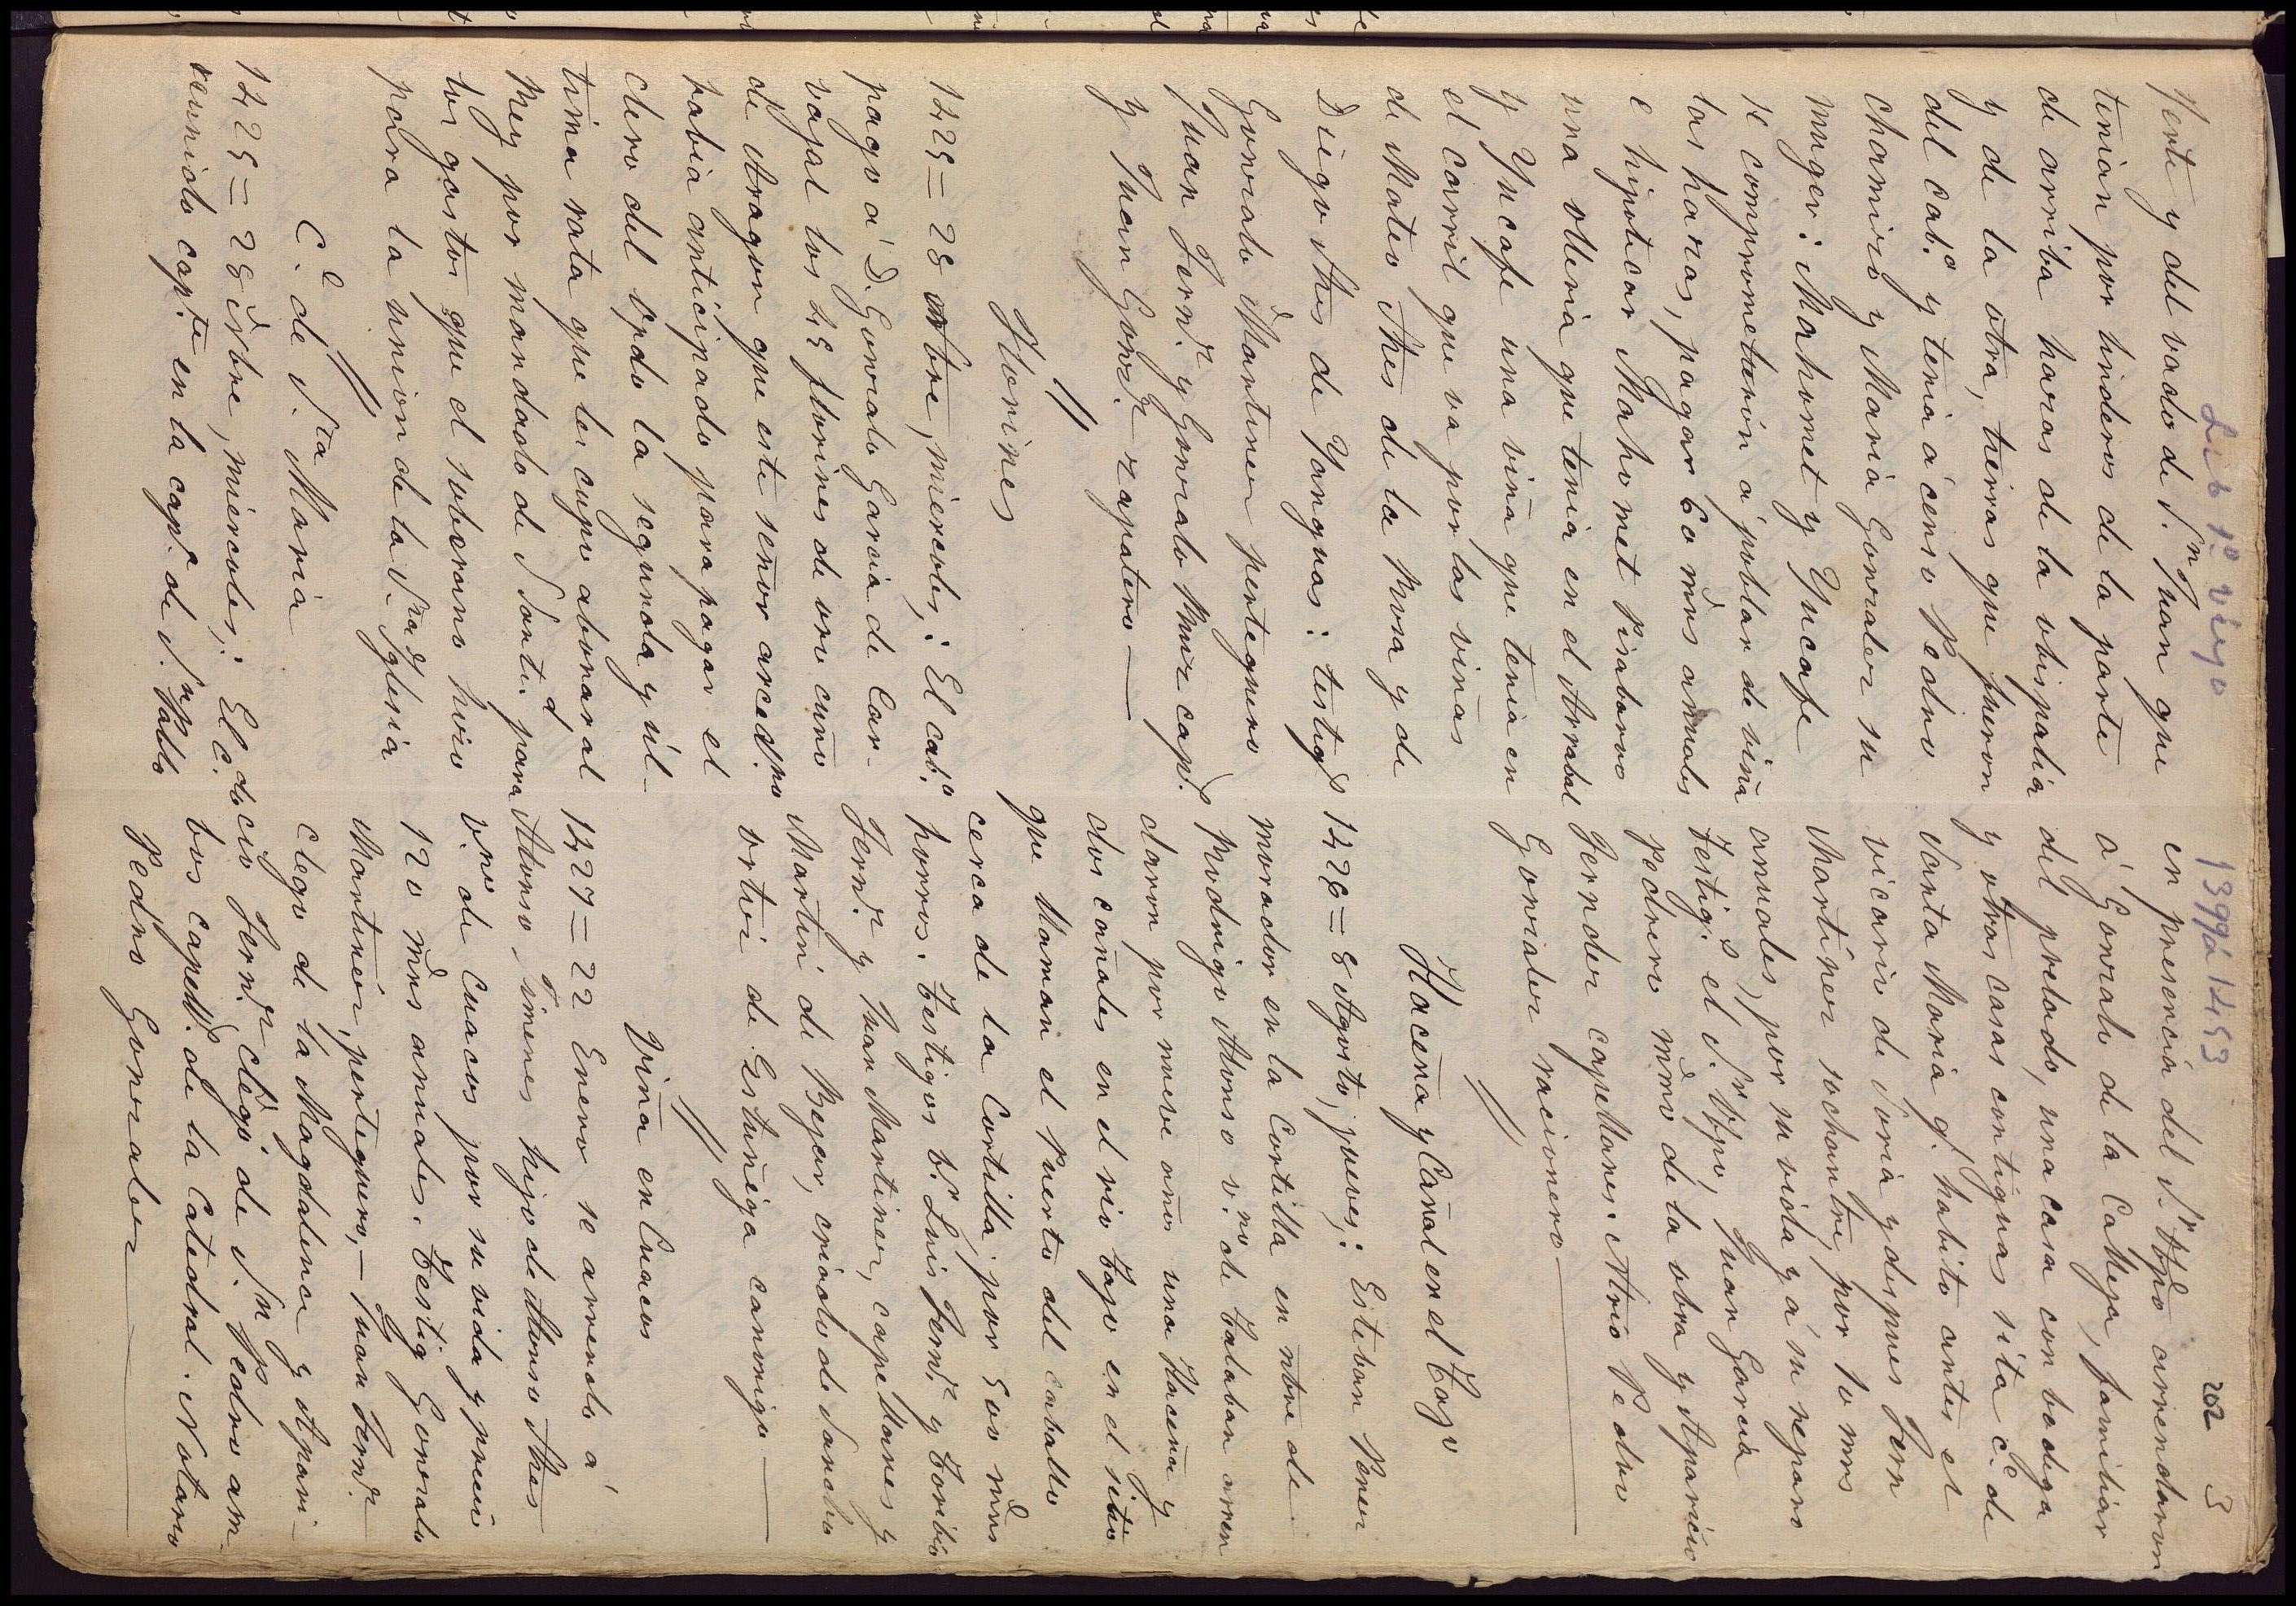 Lib 1º viejo 1399 á 1453 202 3
Xerte y del vado de S.n Juan que
tenian por linderos de la parte
de arriba hazas de la obispalia
y de la otra, tierras que fueron
del cab.o y tenia á censo Pedro
Chamizo y Maria Gonzalez su
muger: Mahomet y Yucafe
se comprometieron á poblar de viña
las hazas, pagar 60 mrs anuales
e hipotecar Mahomet Pisabarro
una olleria que tenia en el Arrabal
y Yucafe una viña que tenia en
el carril que va por las viñas
de Mateo Shes de la Rosa y de
Diego Shes de Yanguas: testig.s
Gonzalo Martinez perteguero
Juan Fern.z y Gonzalo Ruiz cap.s
y Juan Gonz.z zapatero —
//
Florines
1425 = 28 Nbre, miercoles,: El cab.o
pagó á D. Gonzalo Garcia de Car-
vajal los 45 florines de oro cuño
de Aragon que este señor arced.no
habia anticipado para pagar el
clero del Opdo la segunda y úl-
tima rata que les cupo abonar al
Rey por mandado de Santi.d para
los gastos que el soberano hizo
para la union de la S.ta Yglesia
//
C.l de S.ta Maria
1425 = 28 Nbre, miercoles,: El C.do
reunido cap.te en la cap.a de S.n Pablo
en presencia del S.r Obpo arrendaron
á Gonzalo de la Calleja, familiar
del prelado, una casa con bodega
y otras casas contiguas sita C.e de
Santa Maria q. habito antes el
vicario de Soria y despues Fern
Martinez sochantre, por 70 mrs
anuales, por su vida y á su reparo
Testig.s el S.r Obpo, Juan Garcia
Pedrero mrmo de la obra y Aparicio
Fernandez capellanes: Atrio Pedro
Gonzalez racionero —
//
Haceña y Cañal en el Tajo
1426 = 8 Agosto, jueves,: Esteban Perez
morador en la Cortilla en nbre de
Rodrigo Alonso v.no de Talaban arren
daron por nueve años una Haceña y
dos cañales en el rio Tajo en el sitio
que llaman el Puerto del caballo
cerca de la Cortilla, por 500 mrs
horros. Testigos b.r Luis Fern.z y Toribio
Fern.z y Juan Martinez, capellanes y
Martin de Bejar, criado de Sancho
ortiz de Estuñiga canonigo —
//
Viña en Cuacos
1427 = 22 Enero se arrendo á
Alonso Ximenes hijo de Alonso Shes
v.no de Cuacos por su vida y precio
120 mrs anuales. Testig Gonzalo
Martinez, pertiguero, — Juan Fern.z
clego de la Magdalena y Apari-
cio Fern.z clego de S.n Pedro am-
bos capell.s de la Catedral. Notario
Pedro Gonzalez —